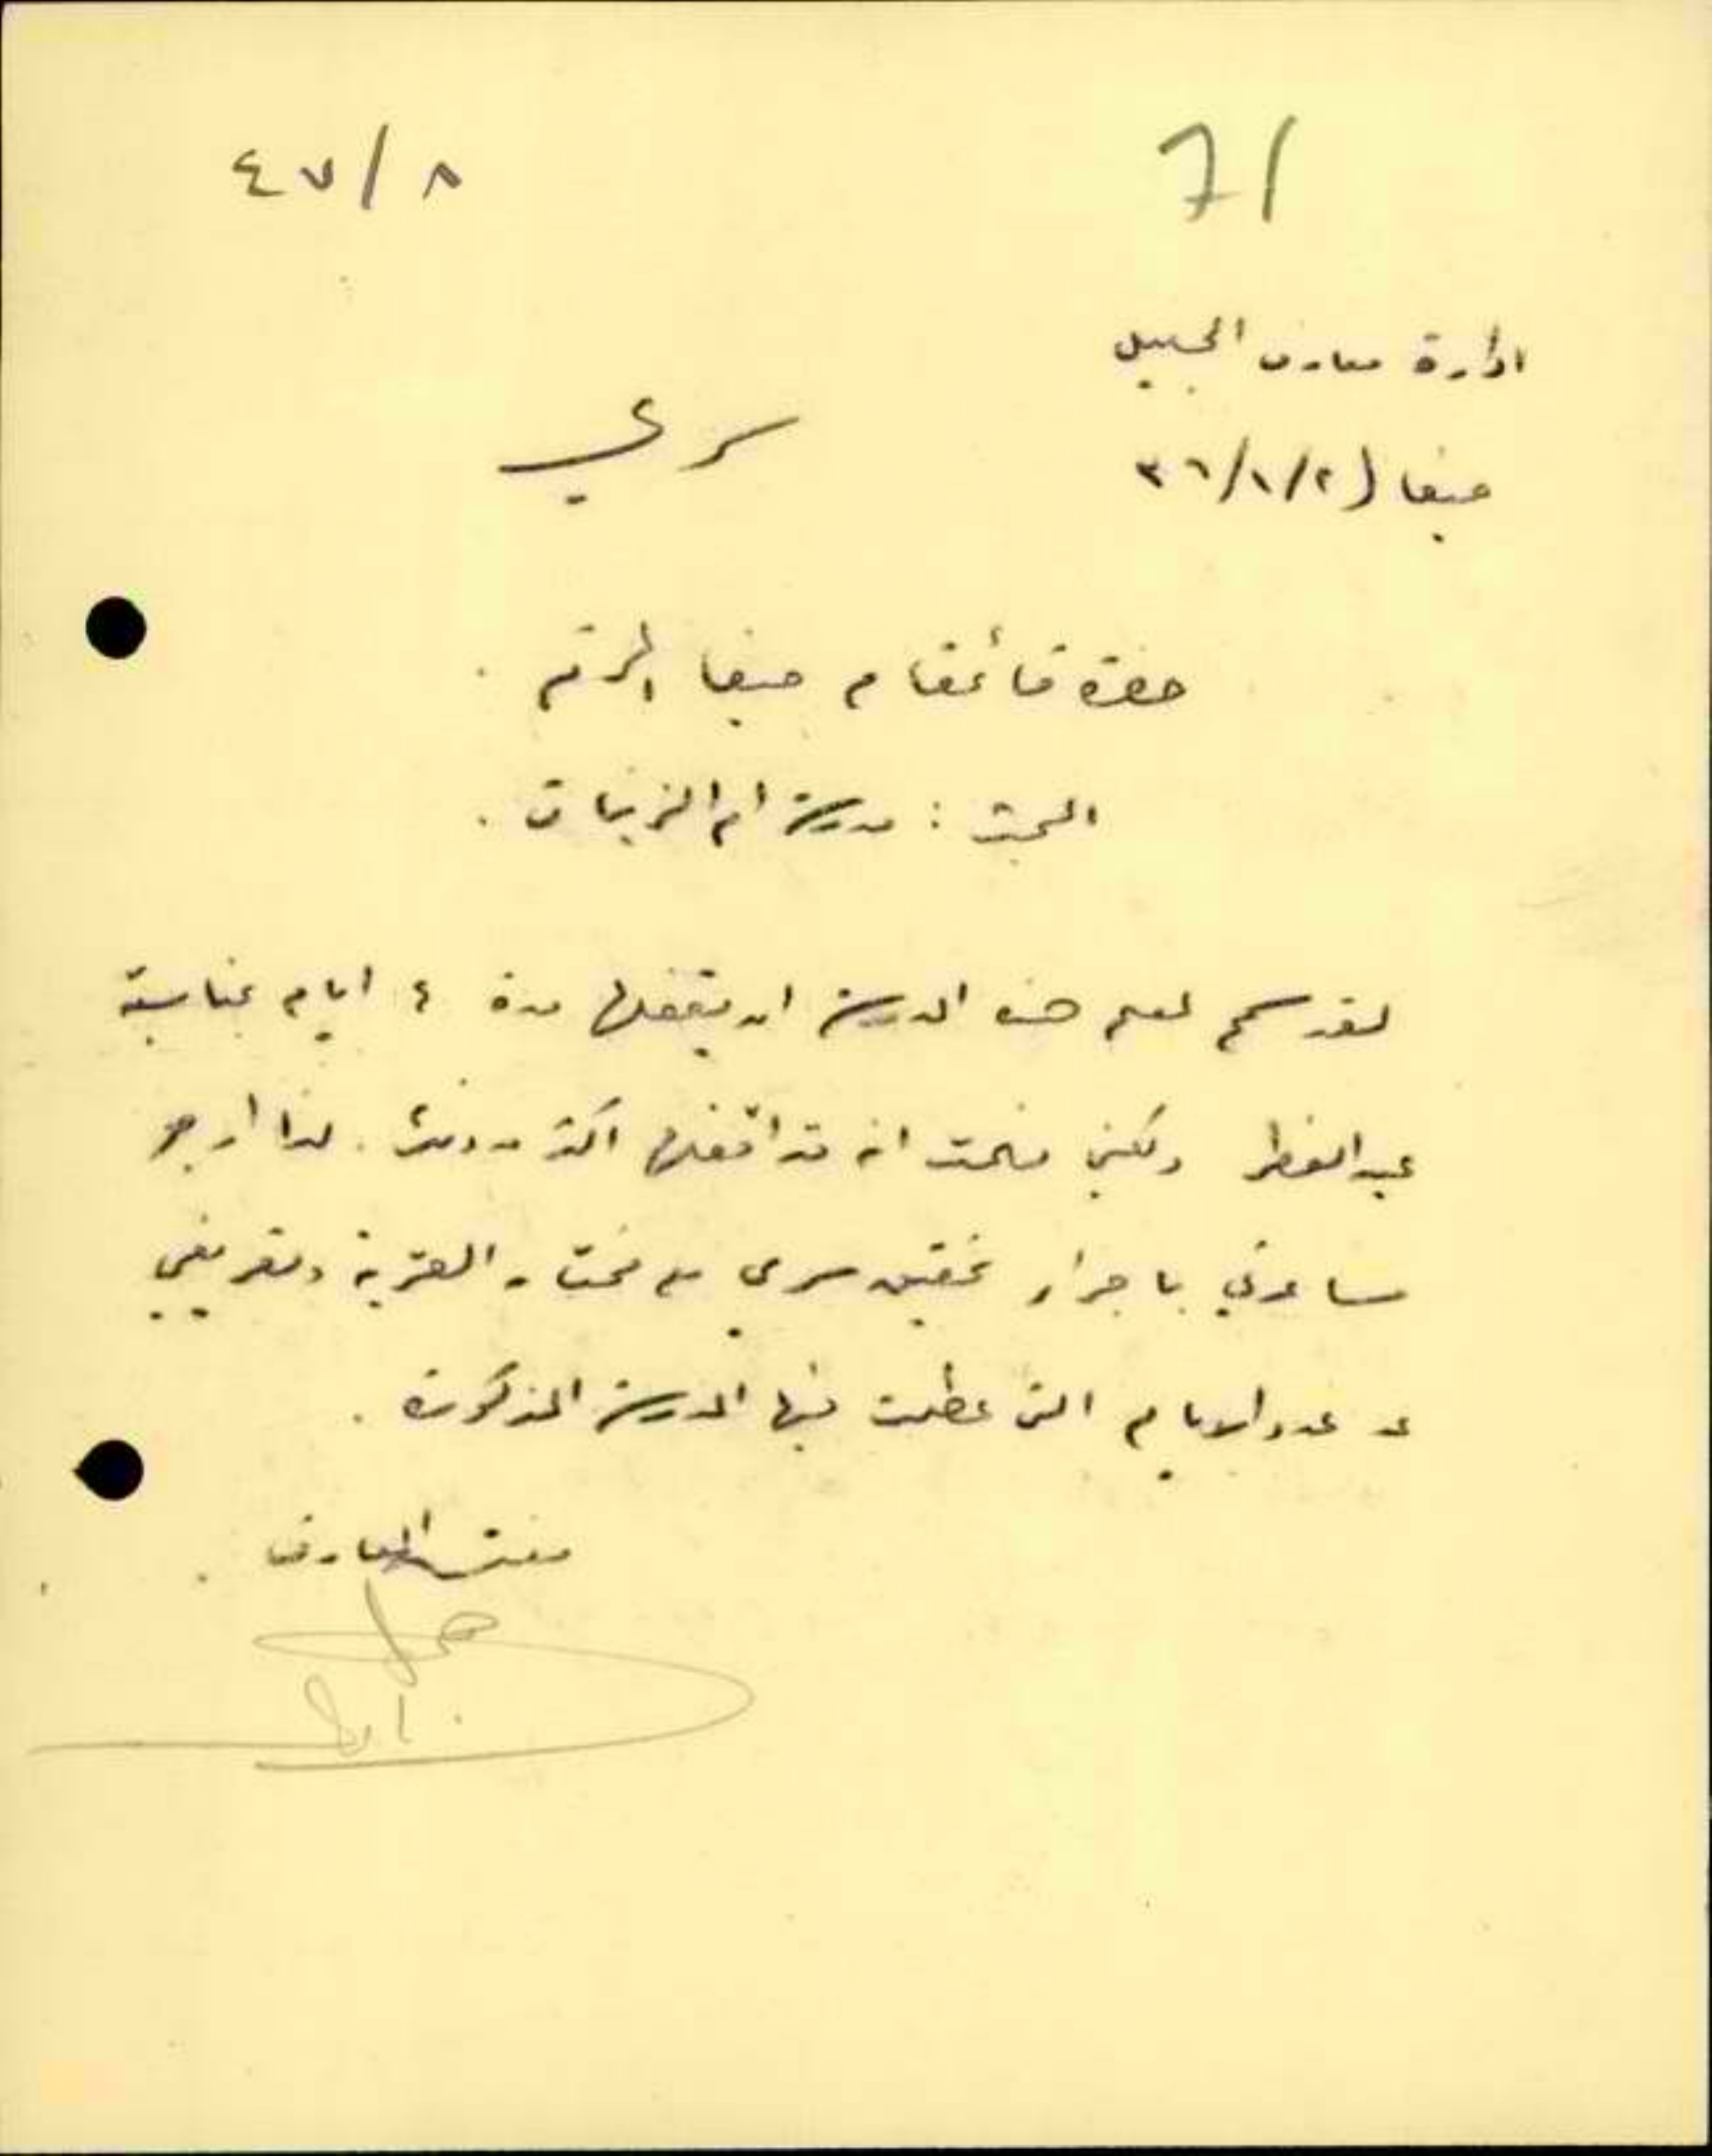 ٤٧/٨
71
ادارة معارف الجليل
حيفا ٣٦/١/٢
سري
حضرة قائمقام حيفا المحترم .
البحث : مدرسة ام الزينات .
لقد سمح لمعلم هذه المدرسة ان يقفلها مدة ٤ ايام بمناسبة
عيد الفطر ولكني فهمت انه قد اقفلها اكثر من ذلك . لذا ارجو
مساعدتي باجراء تحقيق سري مع مختار القرية وتعريفي
عن عدد الايام التي عطلت فيها المدرسة المذكورة .
مفتش المعارف